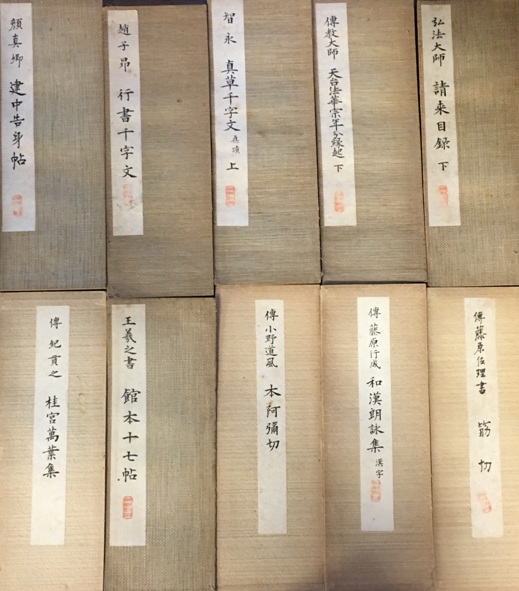 弘法大師 請来目録 下
傳教大師 天台法華宗年分縁起 下
智永 真草千字文 上
趙子昂 行書千字文
顔真卿 建中告身帖
傳藤原佐理書 筋切
傳藤原行成 和漢朗詠集 漢字
傳小野道風 本阿彌切
王羲之書 館本十七帖
傳紀貫之 桂宮萬葉集